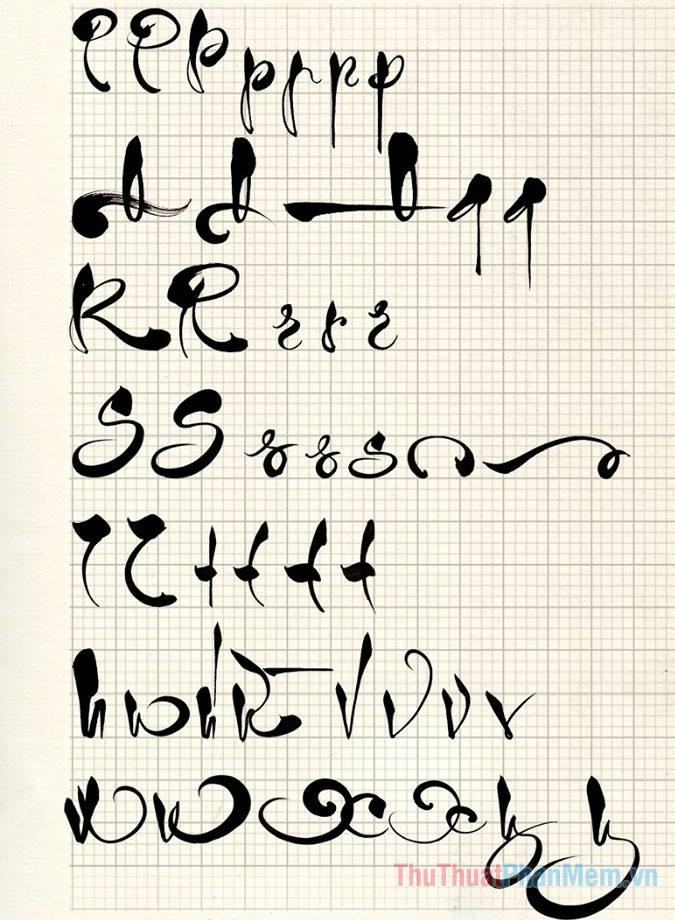 P P P p p p p
q q
R R r r r
S S s s s
T T t t t t
V v v v
W W X X y y
ThuThuatPhanMem.vn